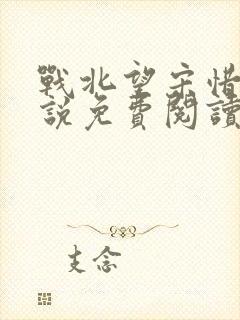 戰北望宋惜
說免費閱讀
支念